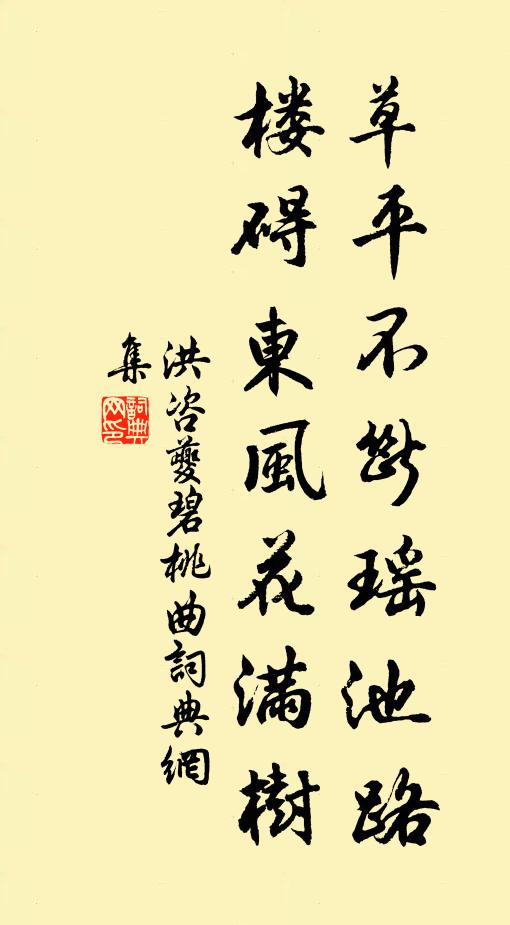 草平不斷瑶池路
楼碍東風花满樹
洪咨夔碧桃曲詞典網
集
詞典网印